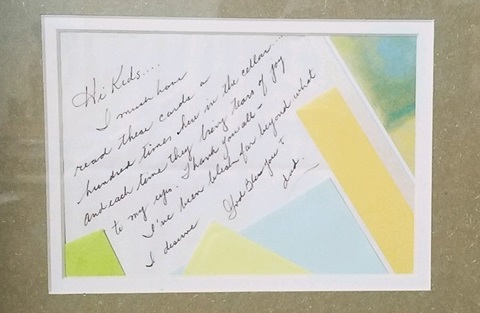 Hi Kids....
I must have
read these cards a
hundred times here in the cellar...
and each time they bring tears of joy
to my eyes. Thank you all -
I've been blest far beyond what
I deserve God Bless you -
dad.